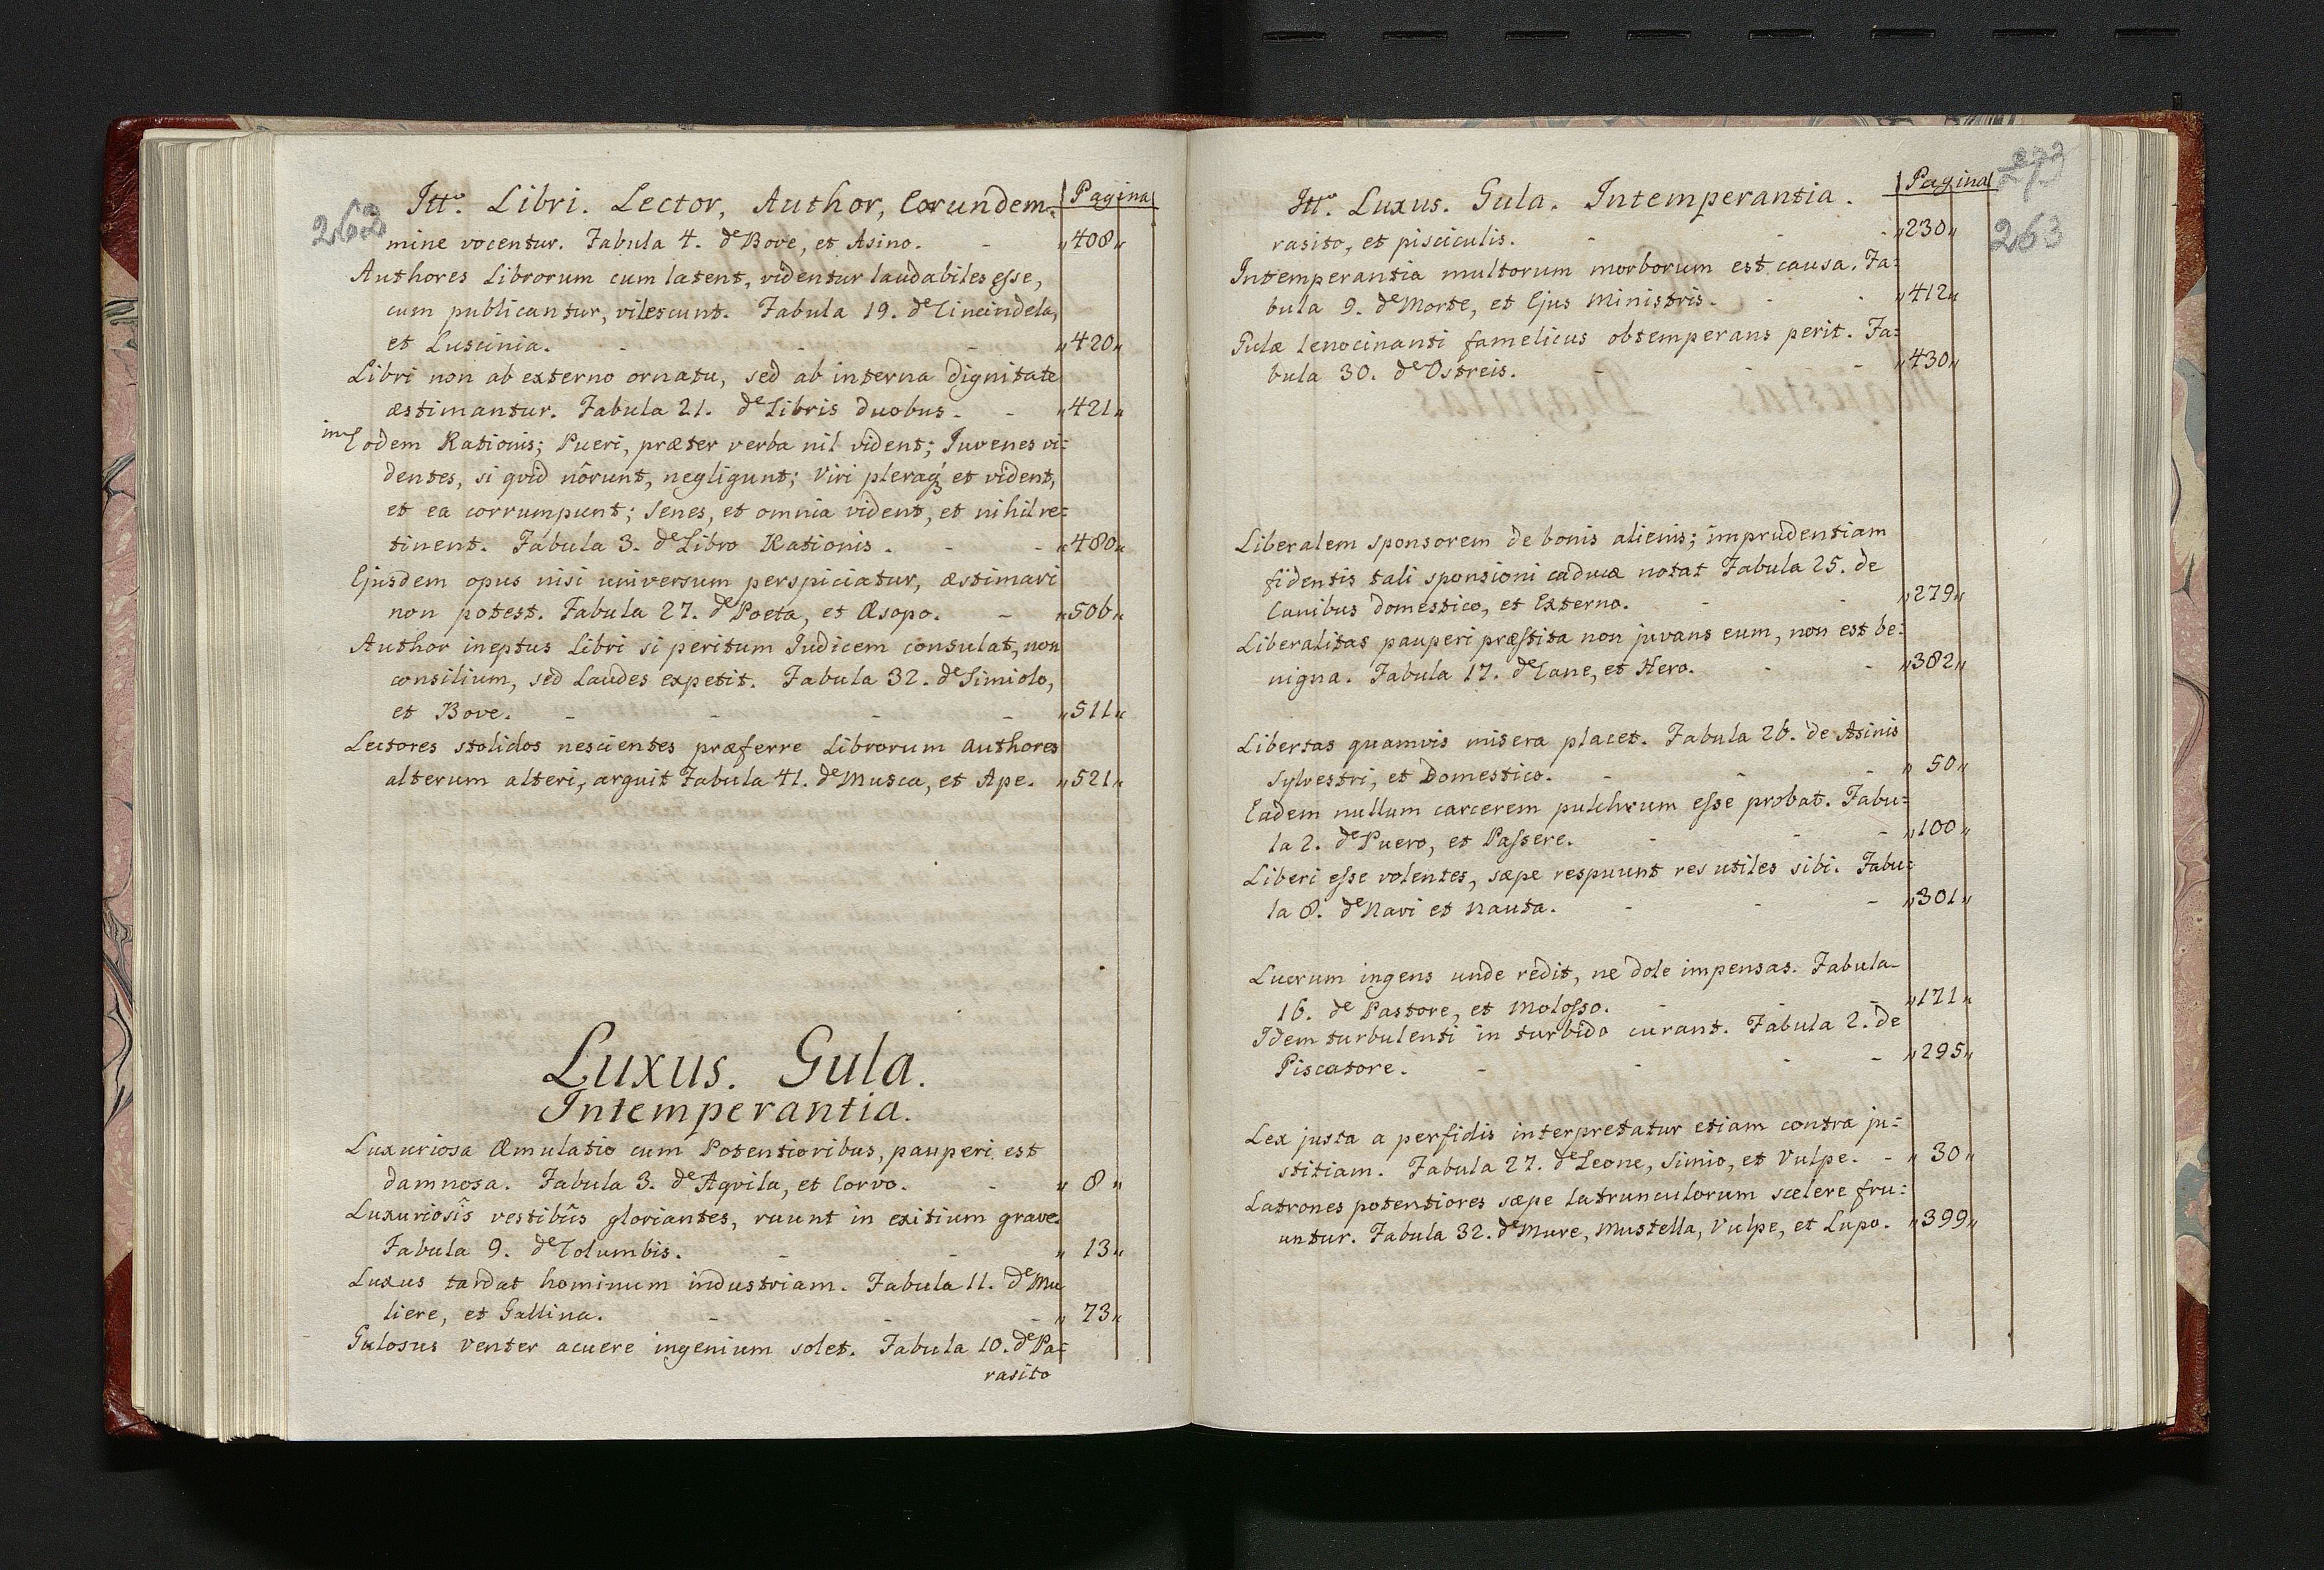 262
Itt⁰. Libri. Lector, Author, Eorundem. Pagina
mine vocentur. Fabula 4. de Bove, et Asino. - „408„
Authores Librorum cum latent, videntur laudabiles esse,
cum publicantur, vilescunt. Fabula 19. de Cincindela,
et Luscinia. - - - „420„
Libri non ab externo ornatu, sed ab interna dignitate
æstimantur. Fabula 21. de Libris duobus - - „421„
in Eodem Rationis; Pueri, præter verba nil vident; Juvenes vi=
dentes, si qvid nôrunt, negligunt; Viri pleraq; et vident,
et ea corrumpunt; Senes, et omnia vident, et nihil re=
tinent. Fabula 3. de Libro Rationis. - - „480„
Ejusdem opus nisi universum perspiciatur, æstimari
non potest. Fabula 27. de Poeta, et Æsopo. - „506„
Author ineptus Libri si peritum Judicem consulat, non
consilium, sed Laudes expetit. Fabula 32. de Simiolo,
et Bove. - - - - „511„
Lectores stolidos nescientes præferre Librorum Authores
alterum alteri, arguit Fabula 41. de Musca, et Ape. „521„
Luxus. Gula.
Intemperantia.
Luxuriosa Æmulatio cum Potentioribus, pauperi est
damnosa. Fabula 3. de Aqvila, et Corvo. - „8„
Luxuriosîs vestibûs gloriantes, ruunt in exitium grave.
Fabula 9. de Columbis. - - „13„
Luxus tardat hominum industriam. Fabula 11. de Mu
liere, et Gallina. - - - „73„
Gulosus venter acuere ingenium solet. Fabula 10. de Pa=
rasito
273
263
Itt⁰. Luxus. Gula. Intemperantia. Pagina
rasito, et pisciculis. - - - „230„
Intemperantia multorum morborum est causa. Fa=
bula 9. de Morte, et Ejus Ministris. - - „412„
Gulæ lenocinanti famelicus obtemperans perit. Fa=
bula 30. de Ostreis. - - - „430„
Liberalem sponsorem de bonis alienis; imprudentiam
fidentis tali sponsioni caducæ notat Fabula 25. de
Canibus domestico, et Externo. - - „279„
Liberalitas pauperi præstita non juvans eum, non est be=
nigna. Fabula 17. de Cane, et Hero. - - „382„
Libertas quamvis misera placet. Fabula 26. de Asinis
Sylvestri, et Domestico. - - - „50„
Eadem nullum carcerem pulchrum esse probat. Fabu=
la 2. de Puero, et Passere. - - - „100„
Liberi esse volentes, sæpe respuunt res utiles sibi. Fabu=
la 8. de Navi et Nauta. - - - „301„
Lucrum ingens unde redit, ne dole impensas. Fabula
16. de Pastore, et Molosso. - - - „171„
Idem turbulenti in turbido curant. Fabula 2. de
Piscatore. - - - - „295„
Lex justa a perfidis interpretatur etiam contra ju=
stitiam. Fabula 27. de Leone, Simio, et Vulpe. - „30„
Latrones potentiores sæpe latrunculorum scelere fru=
untur. Fabula 32. de Mure, Mustella, Vulpe, et Lupo. „399„